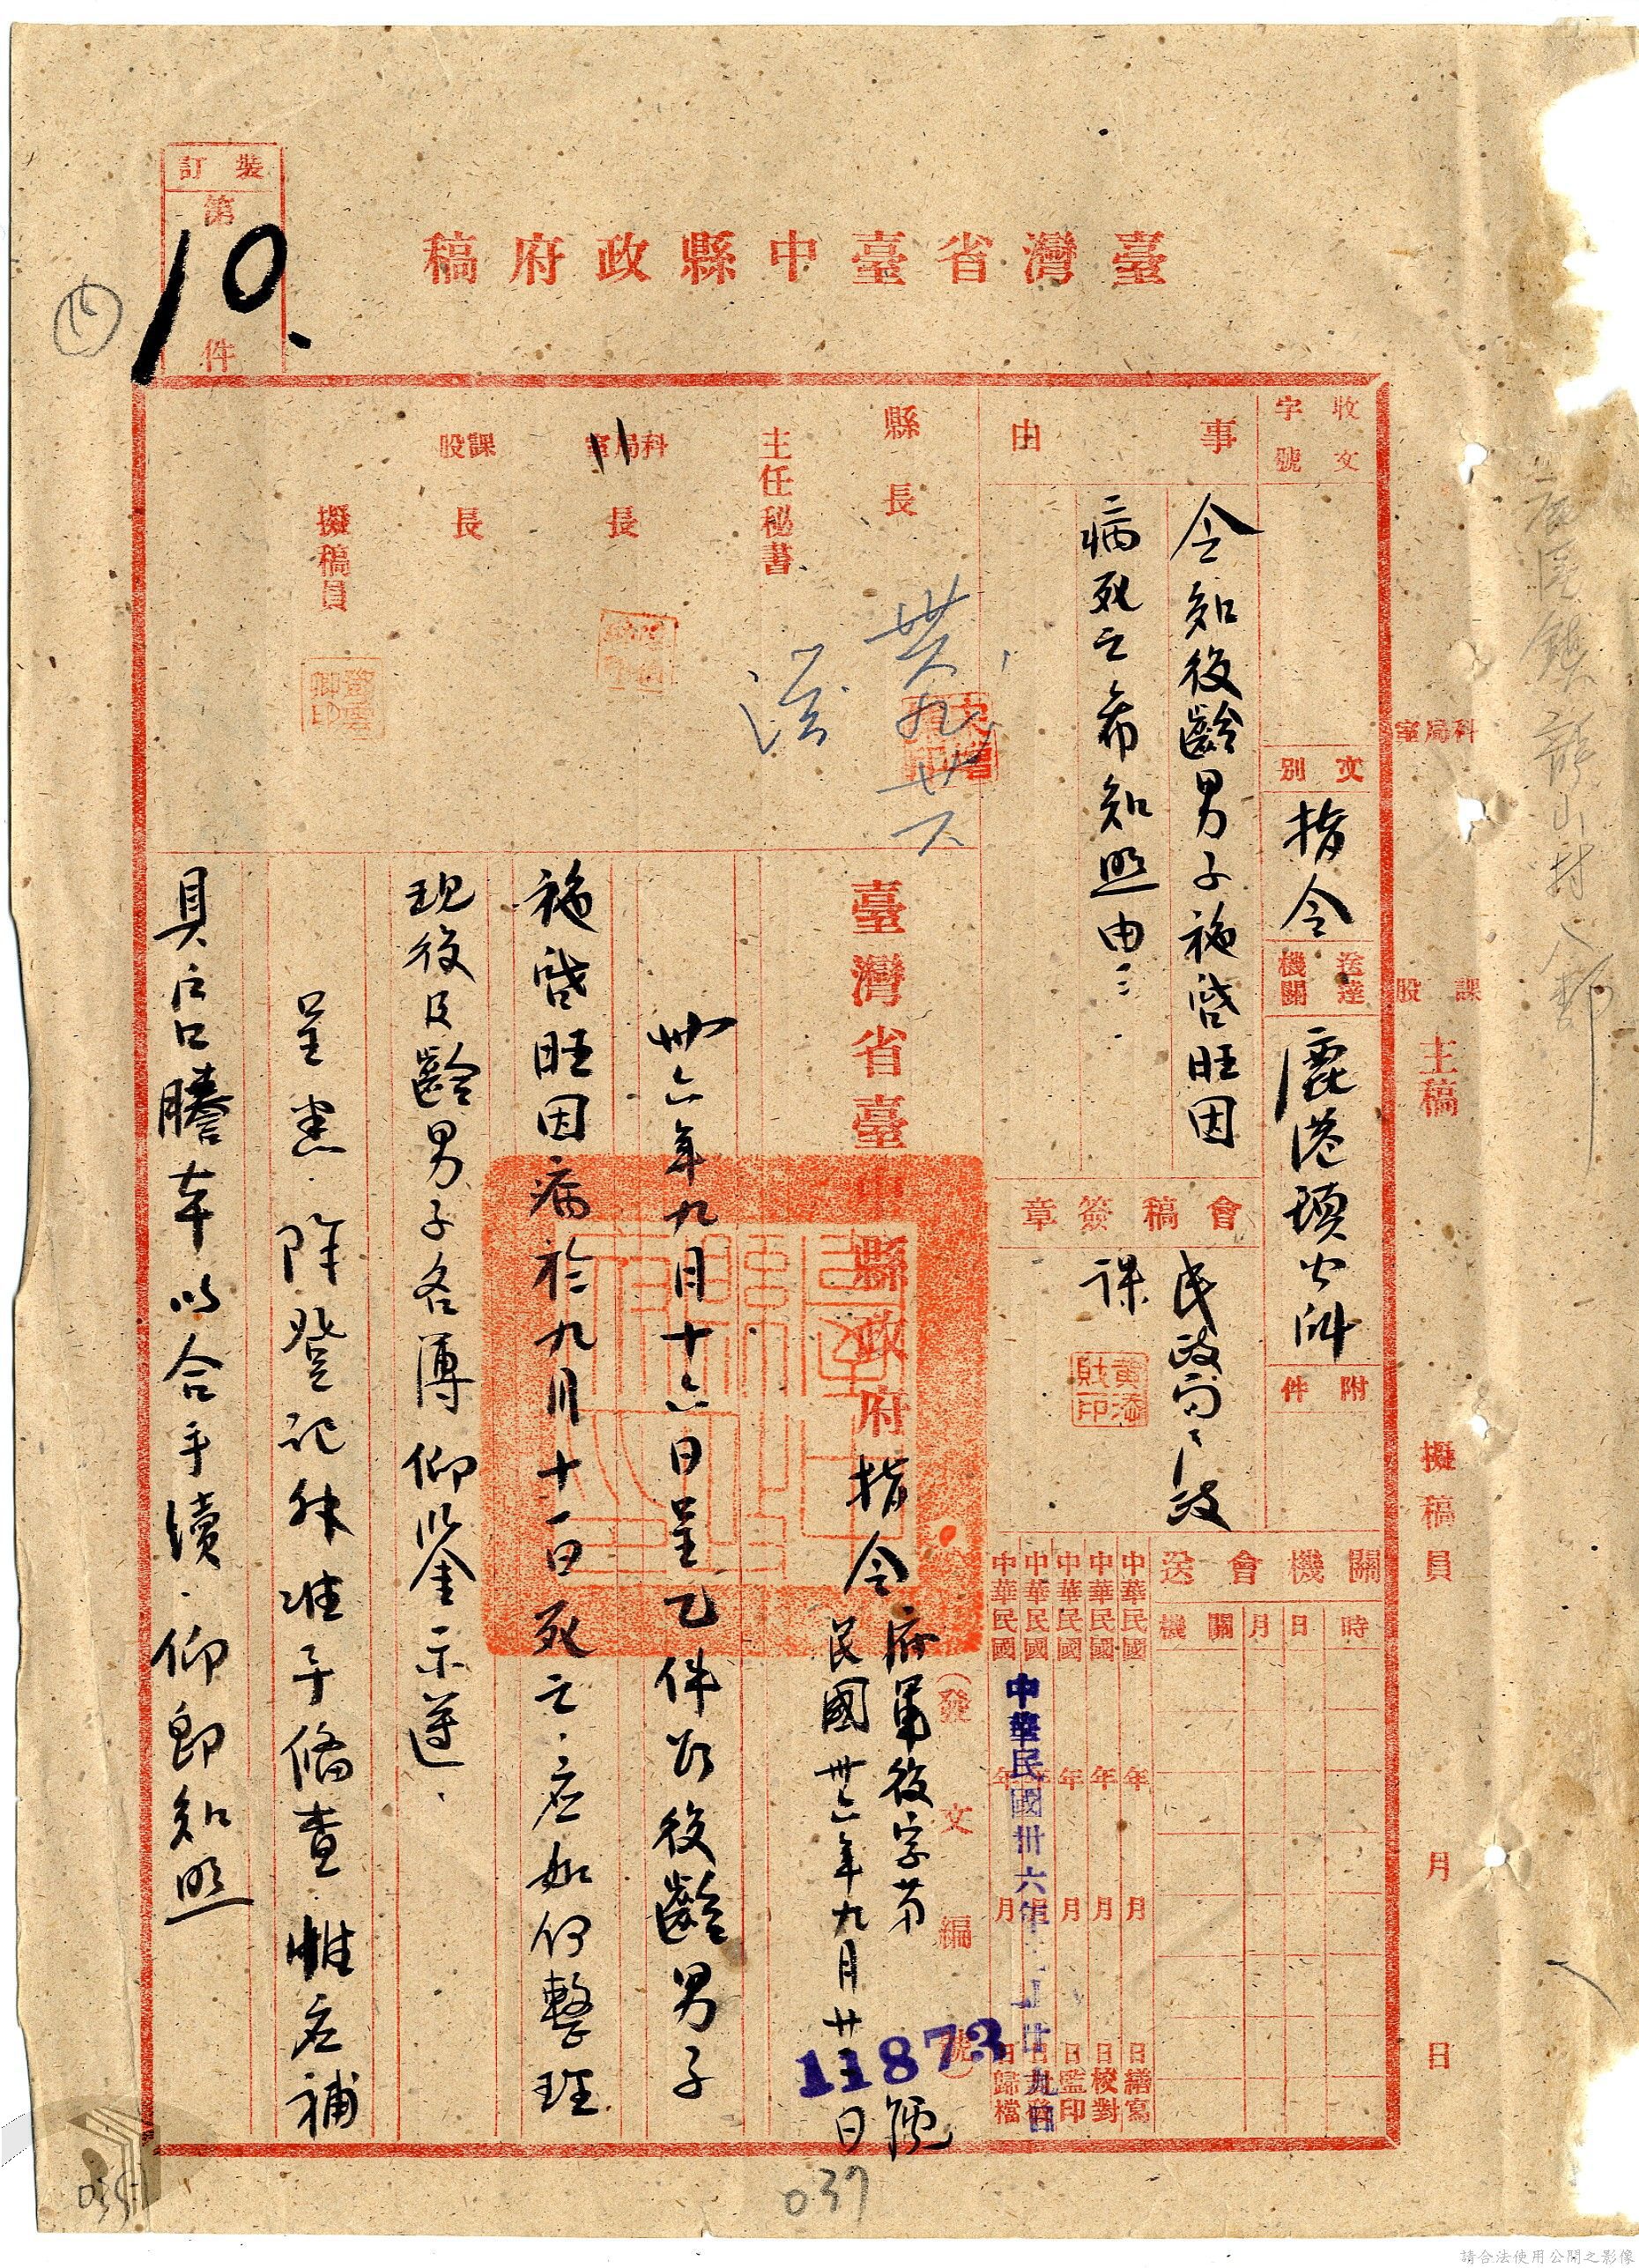 臺灣省臺中縣政府稿
裝訂
第
10.
件
收文
字號
文別
指令
送達機關
鹿港鎮公所
附件
事由
令知役齡男子施啓旺因
病死亡希知照由
會稿簽章
民政局民政
課
黃添財印
送會機關
機關
月
日
時
中華民國 年 月 日繕寫
中華民國 年 月 日校對
中華民國 年 月 日監印
中華民國 年 月 日
中華民國 年 月 日歸檔
中華民國卅六年 月廿九日
縣長
主任秘書
科局室長
課股長
擬稿員
鄧雲卿印
臺灣省臺中縣政府指令
府軍役字第 號
民國卅六年九月廿 日
(發文編號)
11873
卅六年九月十六日呈乙件以役齡男子
施啓旺因病於九月十一日死亡應如何整理
現役及齡男子名簿仰祈鑒示遵
呈悉除登記外准予備查惟應補
具戶口謄本以合手續仰即知照
科局室
課股
主稿
擬稿員
月
日
037
請合法使用公開之影像